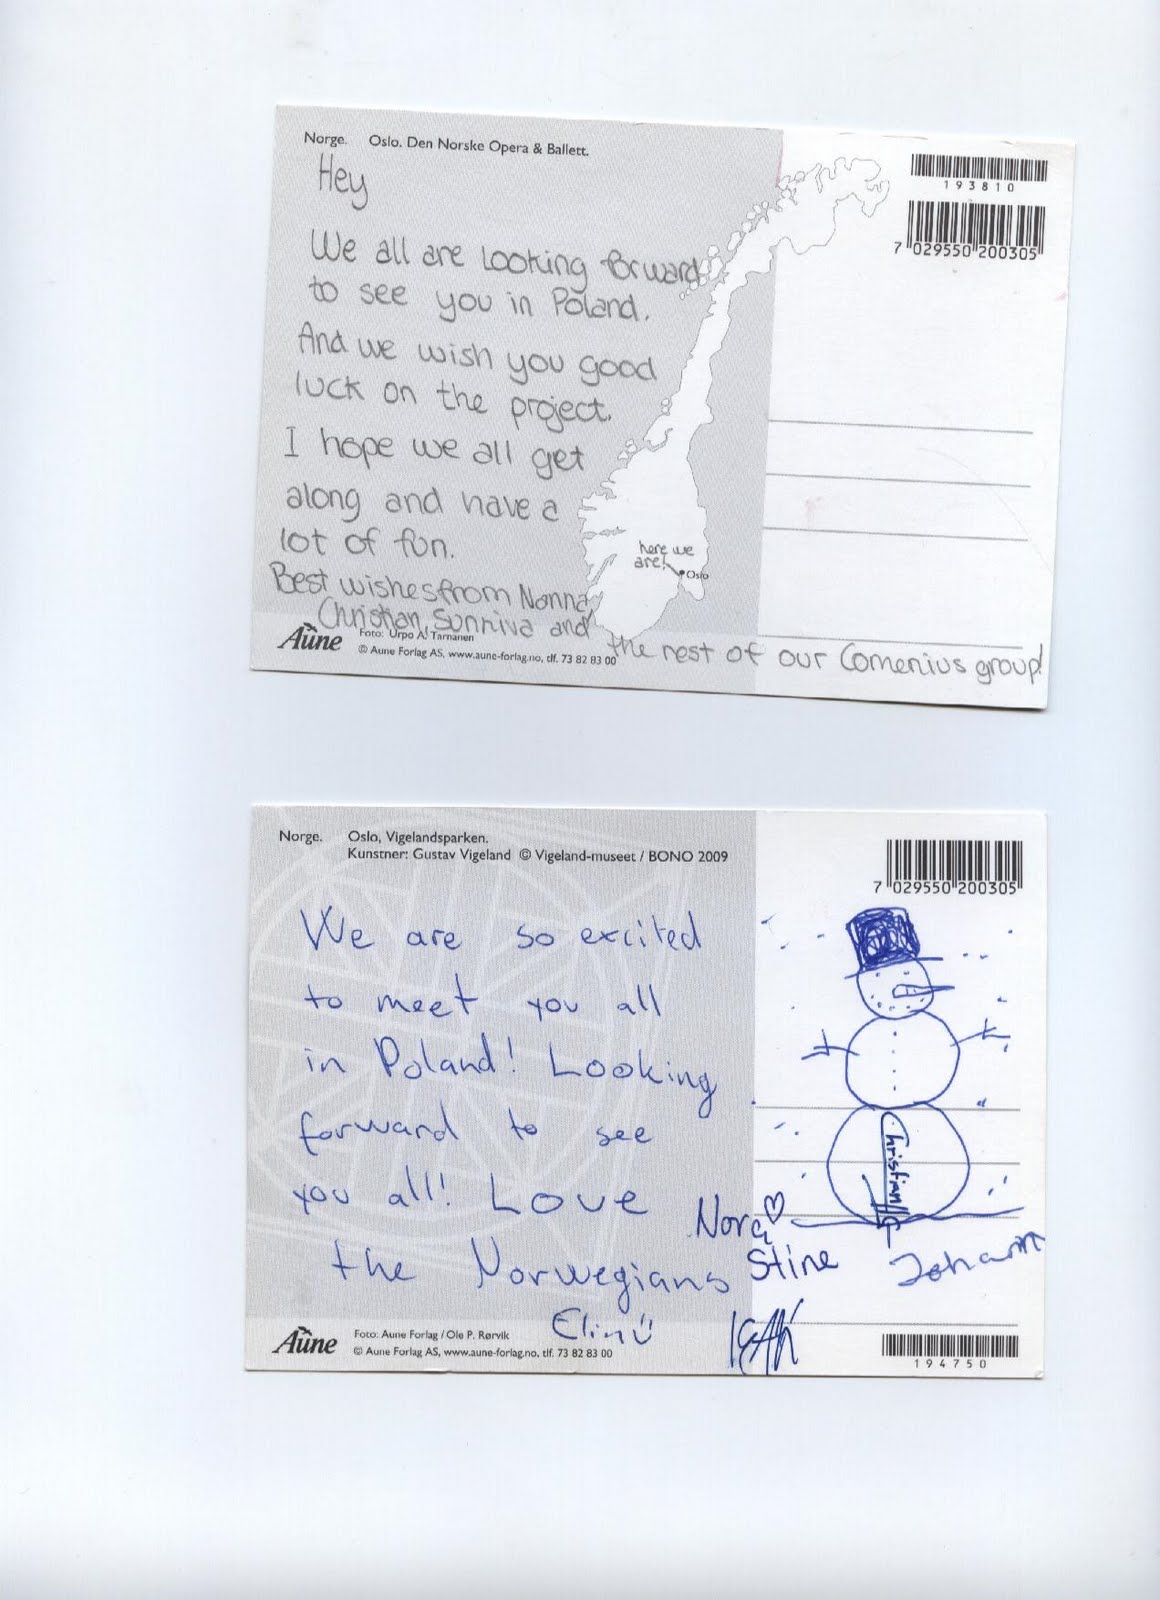 Norge. Oslo. Den Norske Opera & Ballett.
193810
7 029550 200305
Hey
We all are looking forward
to see you in Poland.
And we wish you good
luck on the project.
I hope we all get
along and have a
lot of fun.
here we
are!
Oslo
Best wishes from Nonna
Christian, Sunniva and
the rest of our Comenius group!
Aune
Foto: Urpo A. Tarnanen
© Aune Forlag AS, www.aune-forlag.no, tlf. 73 82 83 00
Norge. Oslo, Vigelandsparken.
Kunstner: Gustav Vigeland © Vigeland-museet / BONO 2009
7 029550 200305
We are so excited
to meet you all
in Poland! Looking
forward to see
you all! Love
the Norwegians
Christian
Nora
Stine
Johann
Elin
Aune
Foto: Aune Forlag / Ole P. Rørvik
© Aune Forlag AS, www.aune-forlag.no, tlf. 73 82 83 00
194750